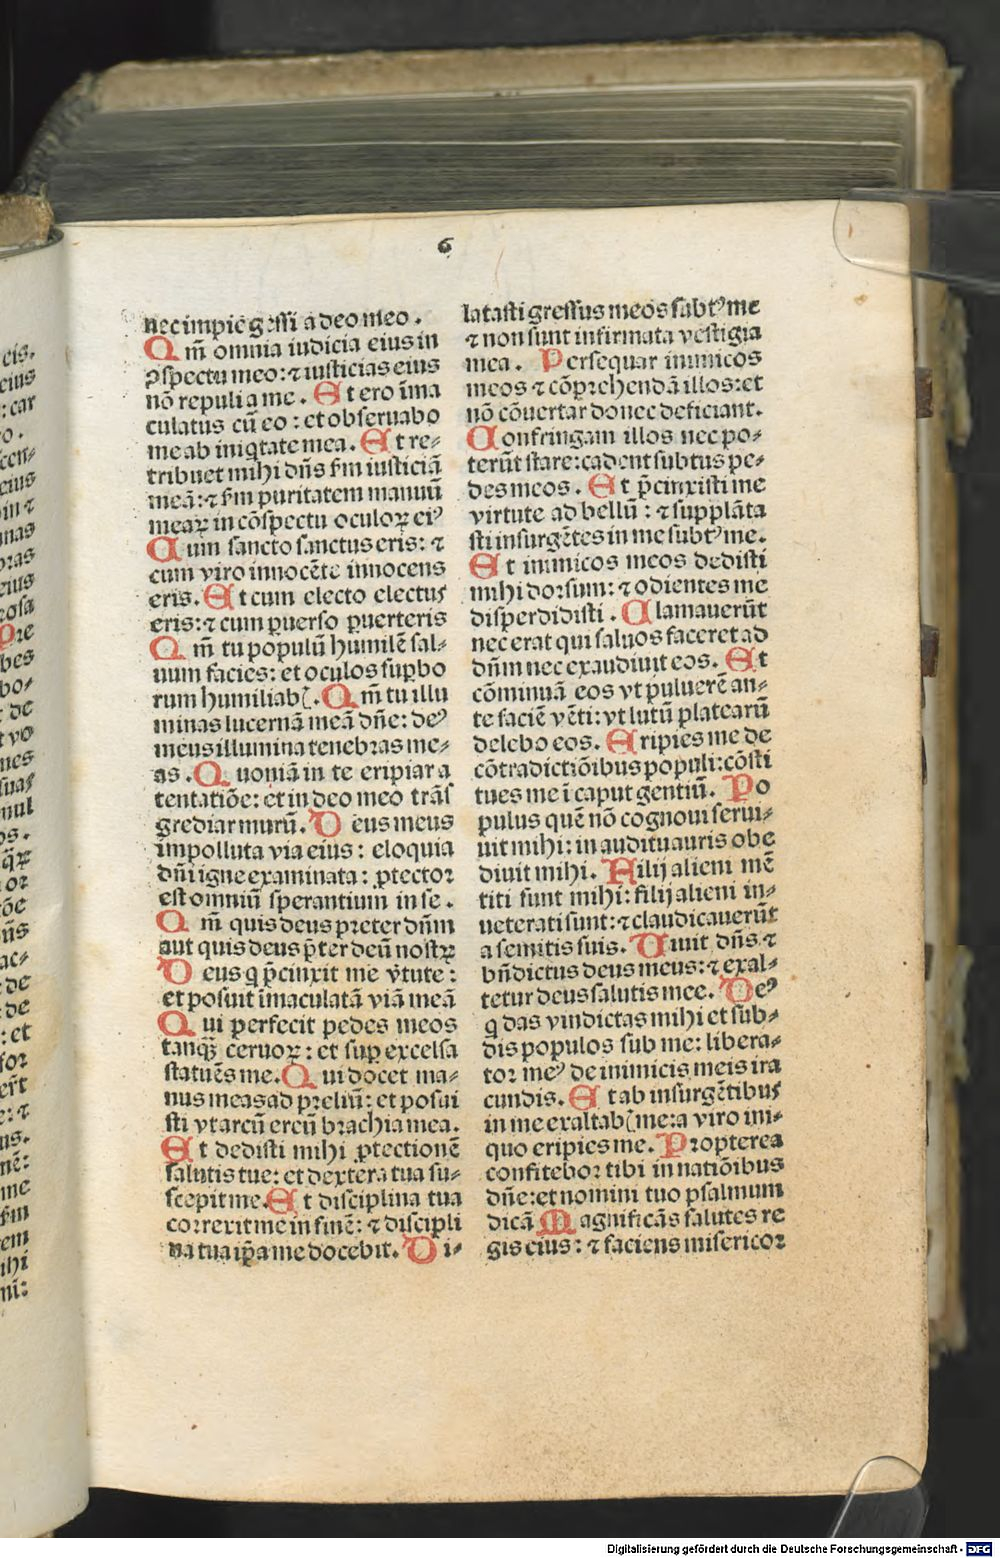 6
nec impie gessi a deo meo .
Qm̄ omnia iudicia eius in
ꝯspectu meo: ⁊ iusticias eius
nō repuli a me . Et ero īma
culatus cū eo : et obseruabo
me ab iniqtate mea . Et re⸗
tribuet mihi dn̄s fm iusticiā
meā: ⁊ fm puritatem manuū
meaꝝ in cōspectu oculoꝝ eiꝰ
Cum sancto sanctus eris: ⁊
cum viro innocēte innocens
eris. Et cum electo electus
eris: ⁊ cum ꝑuerso ꝑuerteris
Qm̄ tu populū humilē sal⸗
uum facies: et oculos suꝑbo
rum humiliabꝭ. Qm̄ tu illu
minas lucernā meā dn̄e: deꝰ
meus illumina tenebras me⸗
as . Quoniā in te eripiar a
tentatiōe: et in deo meo trās
grediar murū. Deus meus
impolluta via eius : eloquia
dn̄i igne examinata: ꝓtector
est omniū sperantium in se .
Qm̄ quis deus preter dn̄m
aut quis deus p̄ter deū nostꝝ
Deus q p̄cinxit me v̄tute :
et posuit īmaculatā viā meā
Qui perfecit pedes meos
tanqꝫ ceruoꝝ : et suꝑ excelsa
statuēs me. Qui docet ma⸗
nus meas ad preliū: et posui
sti vt arcū ereū brachia mea.
Et dedisti mihi ꝓtectionē
salutis tue: et dextera tua su⸗
scepit me. Et disciplina tua
correxit me in finē: ⁊ discipli
na tua ip̄a me docebit. Di⸗
latasti gressus meos subtꝰ me
⁊ non sunt infirmata vestigia
mea . Persequar inimicos
meos ⁊ cōprehendā illos: et
nō cōuertar donec deficiant.
Confringam illos nec po⸗
terūt stare: cadent subtus pe⸗
des meos . Et p̄cinxisti me
virtute ad bellū : ⁊ supplāta
sti insurgētes in me subtꝰ me.
Et inimicos meos dedisti
mihi dorsum: ⁊ odientes me
disperdidisti . Clamauerūt
nec erat qui saluos faceret ad
dn̄m nec exaudiuit eos. Et
cōminuā eos vt puluerē an⸗
te faciē vēti: vt lutū platearū
delebo eos. Eripies me de
cōtradictiōibus populi: cōsti
tues me ī caput gentiū. Po
pulus quē nō cognoui serui⸗
uit mihi: in auditu auris obe
diuit mihi. Filij alieni mē
titi sunt mihi: filij alieni in⸗
ueterati sunt: ⁊ claudicauerūt
a semitis suis. Uiuit dn̄s ⁊
bn̄dictus deus meus: ⁊ exal⸗
tetur deus salutis mee. Deꝰ
q das vindictas mihi et sub⸗
dis populos sub me: libera⸗
tor meꝰ de inimicis meis ira
cundis. Et ab insurgētibus
in me exaltabꝭ me: a viro ini⸗
quo eripies me. Propterea
confitebor tibi in natiōibus
dn̄e: et nomini tuo psalmum
dicā Magnificās salutes re
gis eius: ⁊ faciens misericor
Digitalisierung gefördert durch die Deutsche Forschungsgemeinschaft - DFG